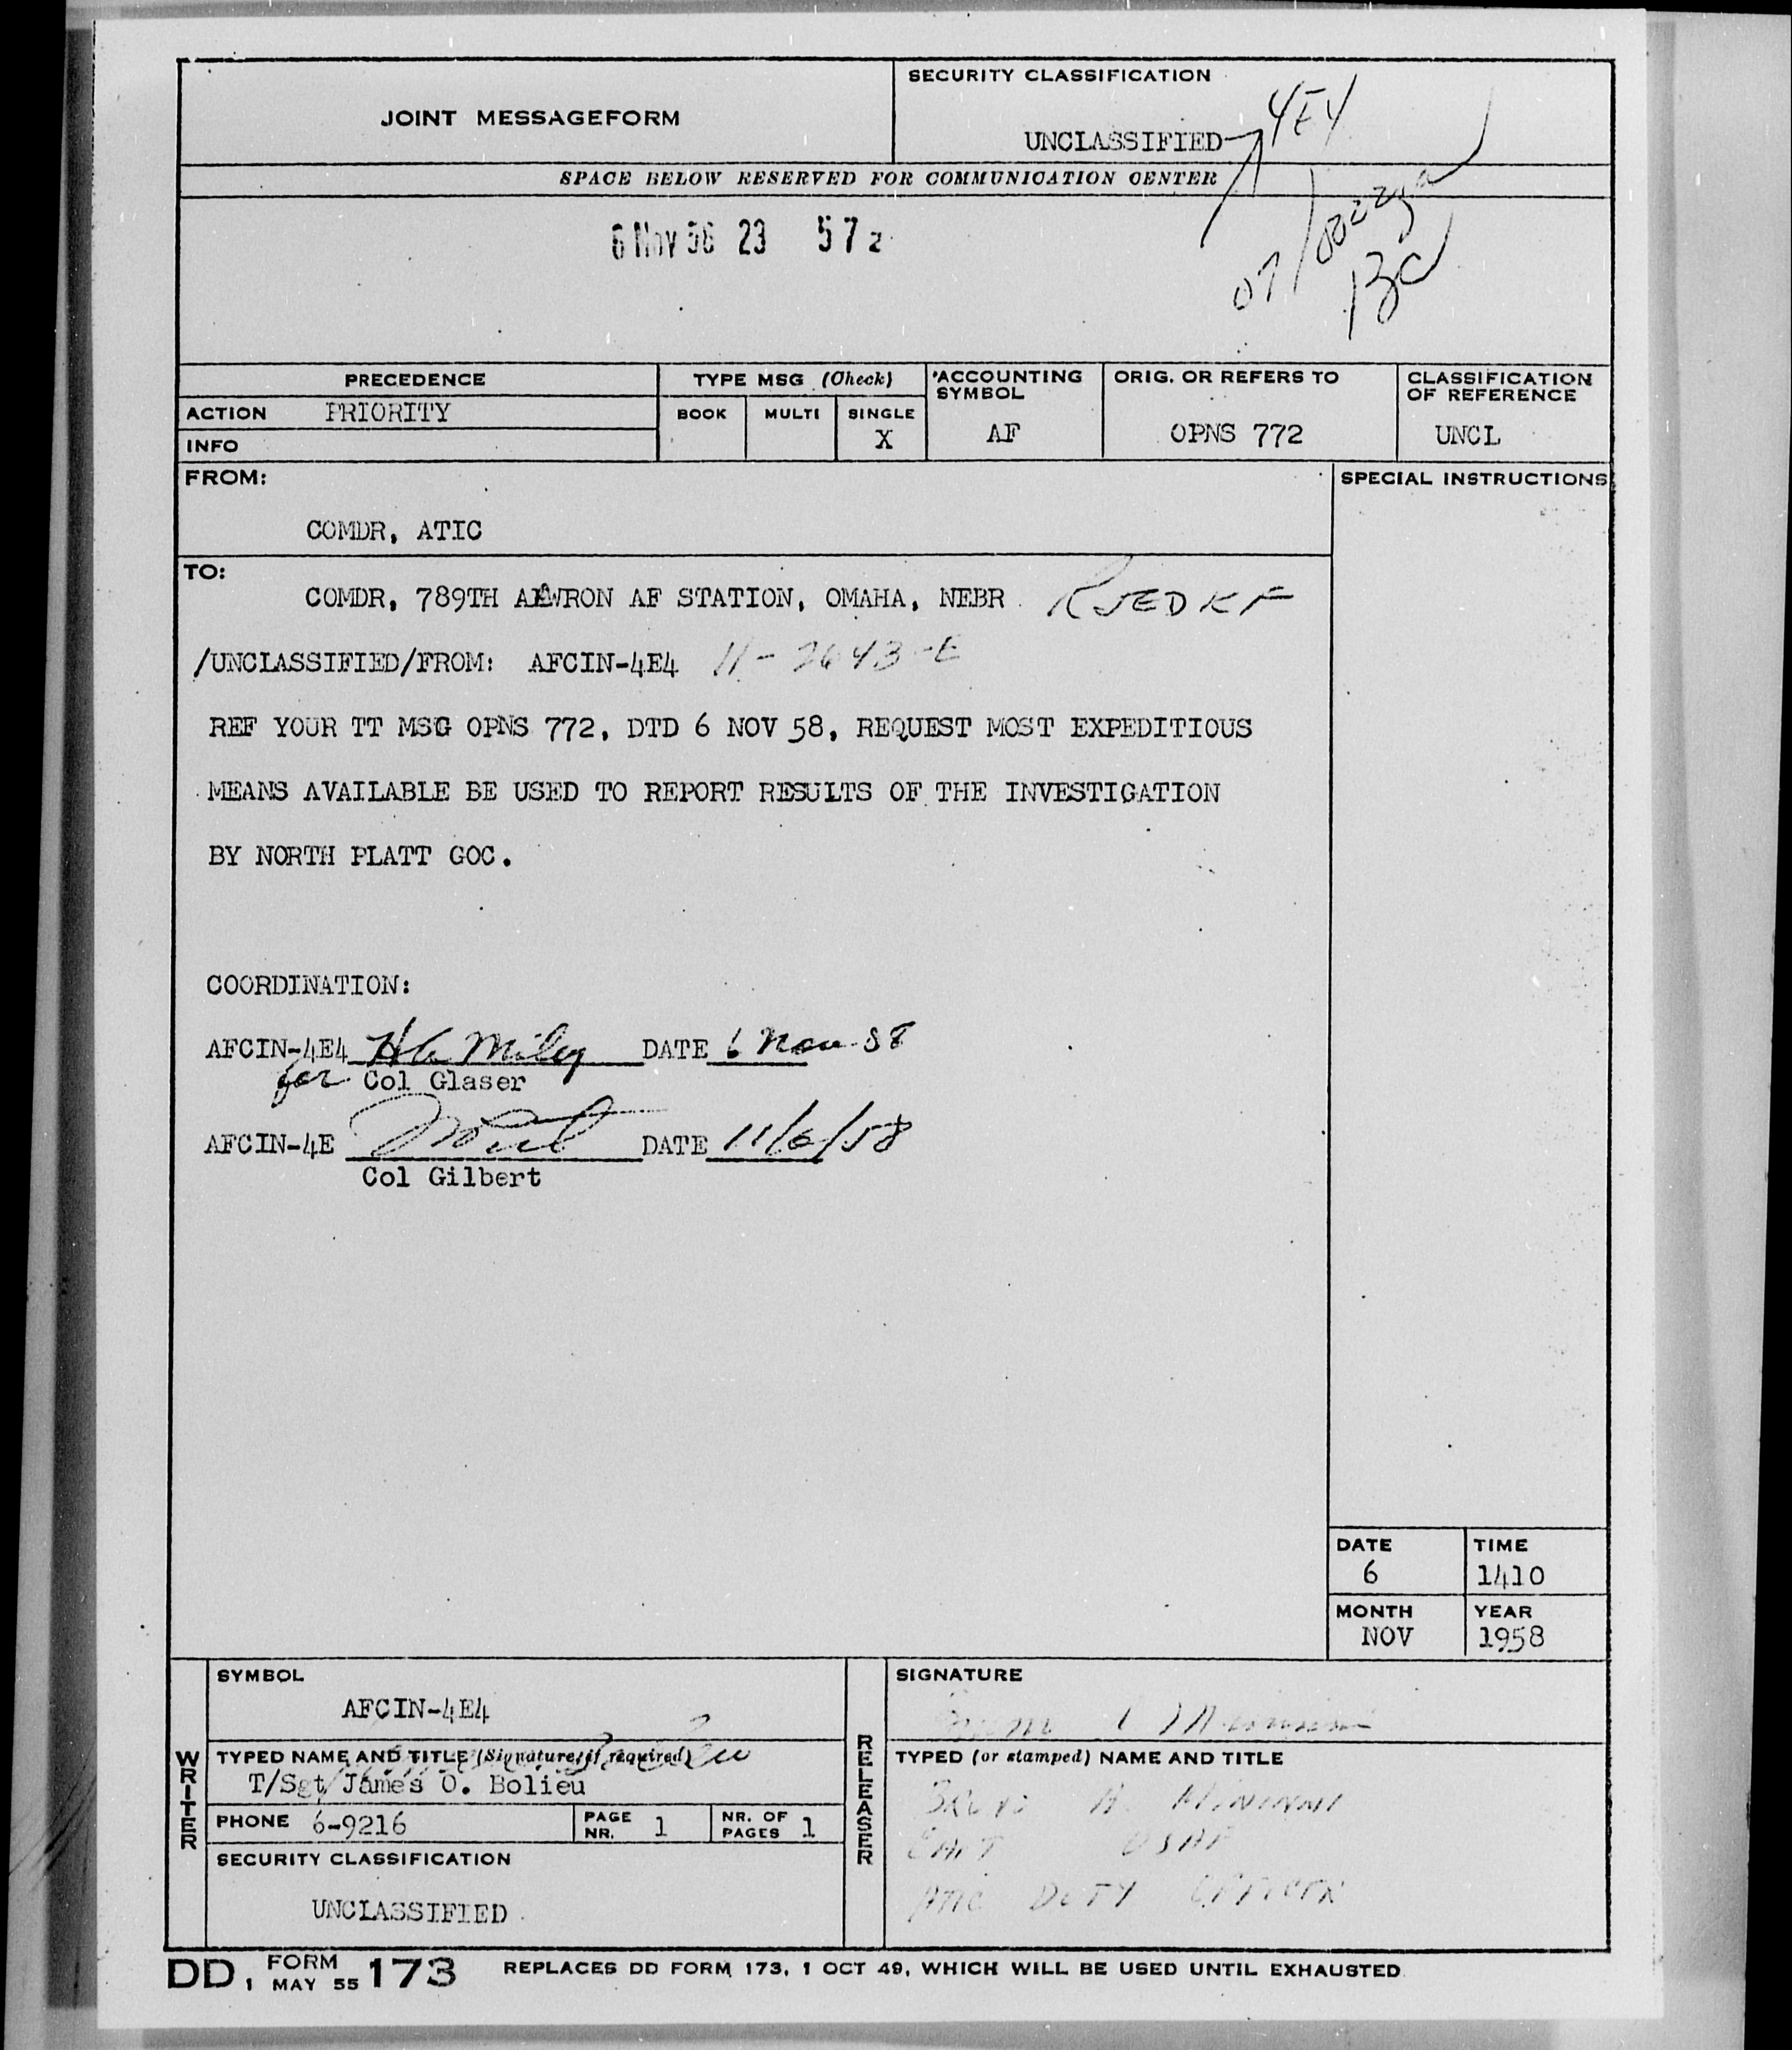 JOINT MESSAGEFORM
SECURITY CLASSIFICATION
UNCLASSIFIED
4E4
SPACE BELOW RESERVED FOR COMMUNICATION CENTER
6 Nov 58 23 57z
07/0022z
PRECEDENCE
TYPE MSG (Check)
ACCOUNTING SYMBOL
ORIG. OR REFERS TO
CLASSIFICATION OF REFERENCE
ACTION PRIORITY
BOOK MULTI SINGLE
X
AF
OPNS 772
UNCL
INFO
FROM:
SPECIAL INSTRUCTIONS
COMDR, ATIC
TO:
COMDR, 789TH AEWRON AF STATION, OMAHA, NEBR RJEDKF
/UNCLASSIFIED/FROM: AFCIN-4E4 11-2643-E
REF YOUR TT MSG OPNS 772, DTD 6 NOV 58, REQUEST MOST EXPEDITIOUS
MEANS AVAILABLE BE USED TO REPORT RESULTS OF THE INVESTIGATION
BY NORTH PLATT GOC.
COORDINATION:
AFCIN-4E4 DATE 6 Nov 58
for Col Glaser
AFCIN-4E DATE 11/6/58
Col Gilbert
DATE
6
TIME
1410
MONTH
NOV
YEAR
1958
WRITER
SYMBOL
AFCIN-4E4
TYPED NAME AND TITLE (Signature, if required)
T/Sgt James O. Bolieu
PHONE 6-9216
PAGE NR. 1
NR. OF PAGES 1
SECURITY CLASSIFICATION
UNCLASSIFIED
RELEASER
SIGNATURE
TYPED (or stamped) NAME AND TITLE
USAF
ATIC DUTY OFFICER
DD FORM 1 MAY 55 173 REPLACES DD FORM 173, 1 OCT 49, WHICH WILL BE USED UNTIL EXHAUSTED